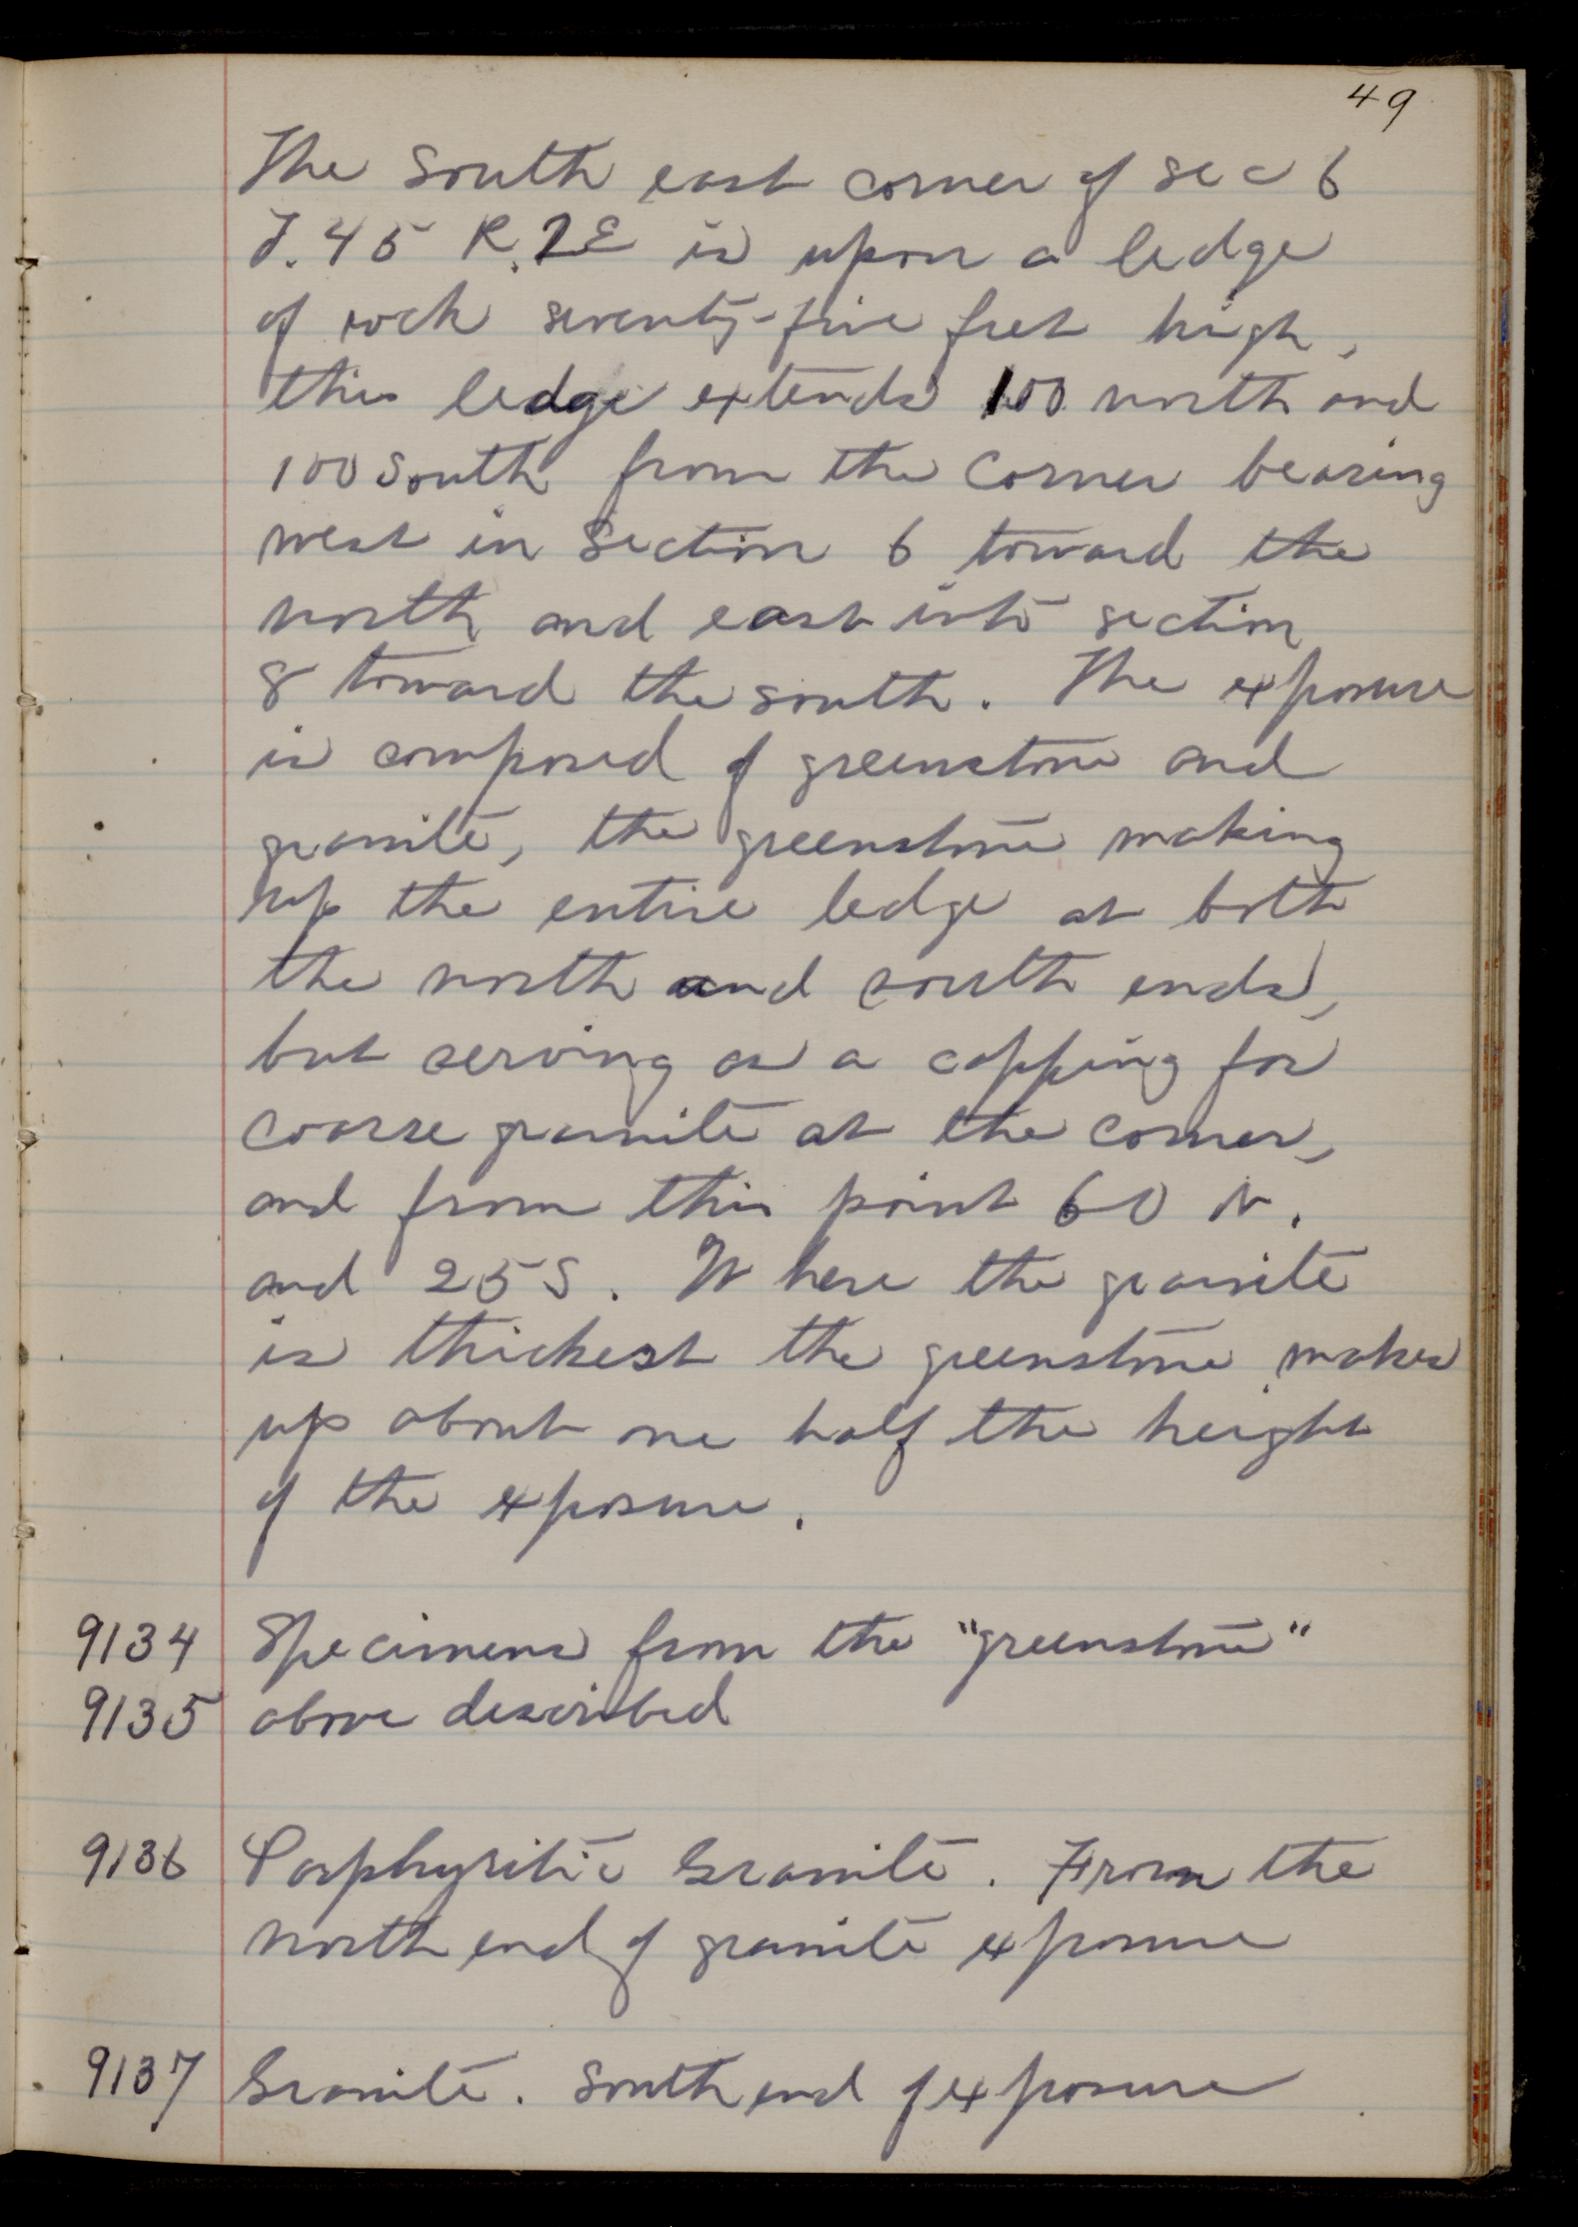 49
The South east corner of sec 6
T. 45 R. 2E is upon a ledge
of rock seventy-five feet high,
this ledge extends 100 north and
100 South from the Corner bearing
west in Section 6 toward the
north and east into section
8 toward the south. The exposure
is composed of greenstone and
granite, the greenstone making
up the entire ledge at both
the north and south ends,
but serving as a capping for
coarse granite at the corner,
and from this point 60 N.
and 25 S. Where the granite
is thickest the greenstone makes
up about one half the height
of the exposure.
9134 Specimens from the "greenstone"
9135 above described
9136 Porphyritic Granite. From the
north end of granite exposure
9137 Granite. South end of exposure